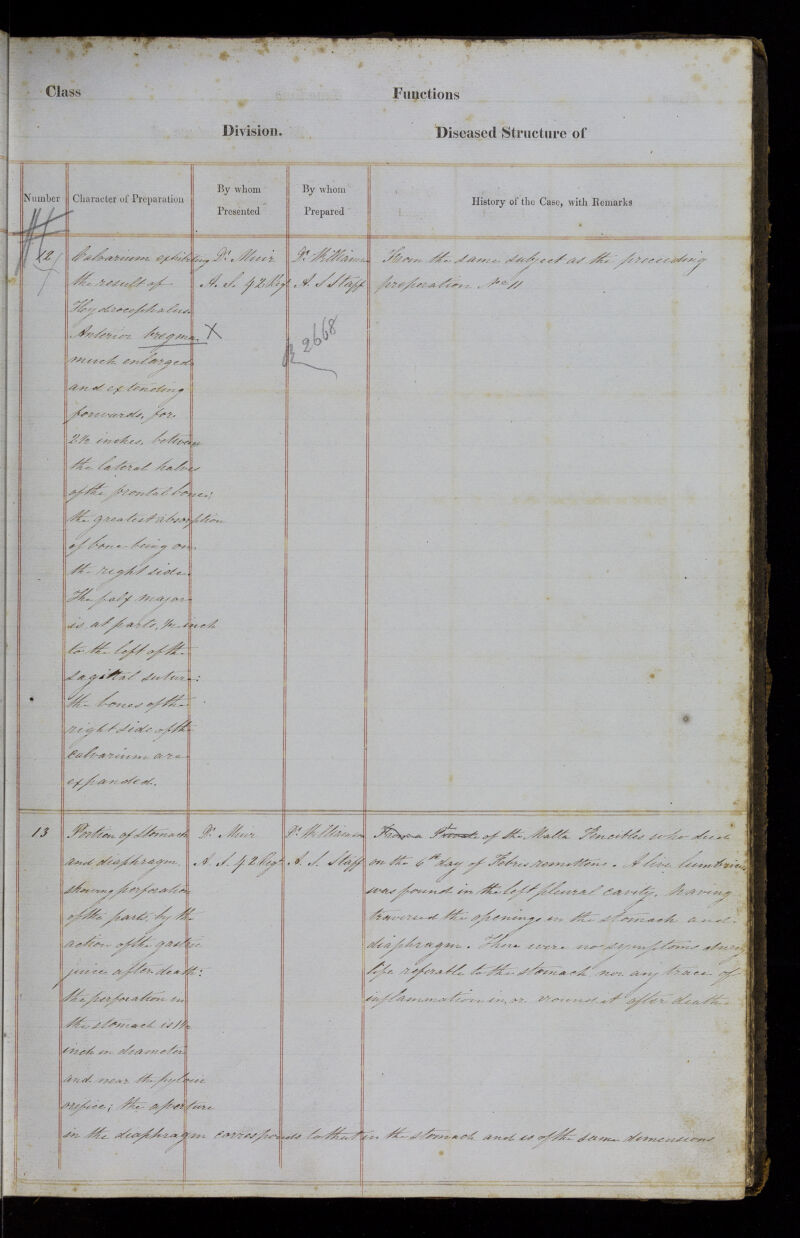 Class Functions
Division. Diseased Structure of
Number Character of Preparation By whom Presented By whom Prepared History of the Case, with Remarks
12
Calvarium exhibiting
the result of
Hydrocephalus.
Anterior bregma X
much enlarged
and extending
forwards, for
2½ inches, between
the lateral halves
of the frontal bone;
the greatest absorption
of bone being on
the right side.
The falx major
is, at parts, ½ inch
to the left of the
sagittal suture:
the bones of the
right side of the
calvarium are
expanded.
Dr. Muir
A. S. 42 Regt
Dr. Williamson
A. S Staff
2668
From the same subject as the preceeding
preparation No. 11
13
Portion of stomach
and diaphragm
shewing perforation
of the parts, by the
action of the gastric
juice after death:
the perforation in
the stomach is 1½
inch in diameter
and near the pyloric
orifice; the aperture
in the diaphragm corresponds to that in the stomach and is of the same dimensions
Dr. Muir
A. S. 42 Regt
Dr. Williamson
A. S. Staff
From a of the Malta Fencibles who died
on the 6th day of Febris remittens. A live lumbricus
was found in the left plural cavity, having
traversed the openings in the stomach and
diaphragm. There were no symptoms during
life referable to the stomach nor any trace of
inflammation in, or around it after death